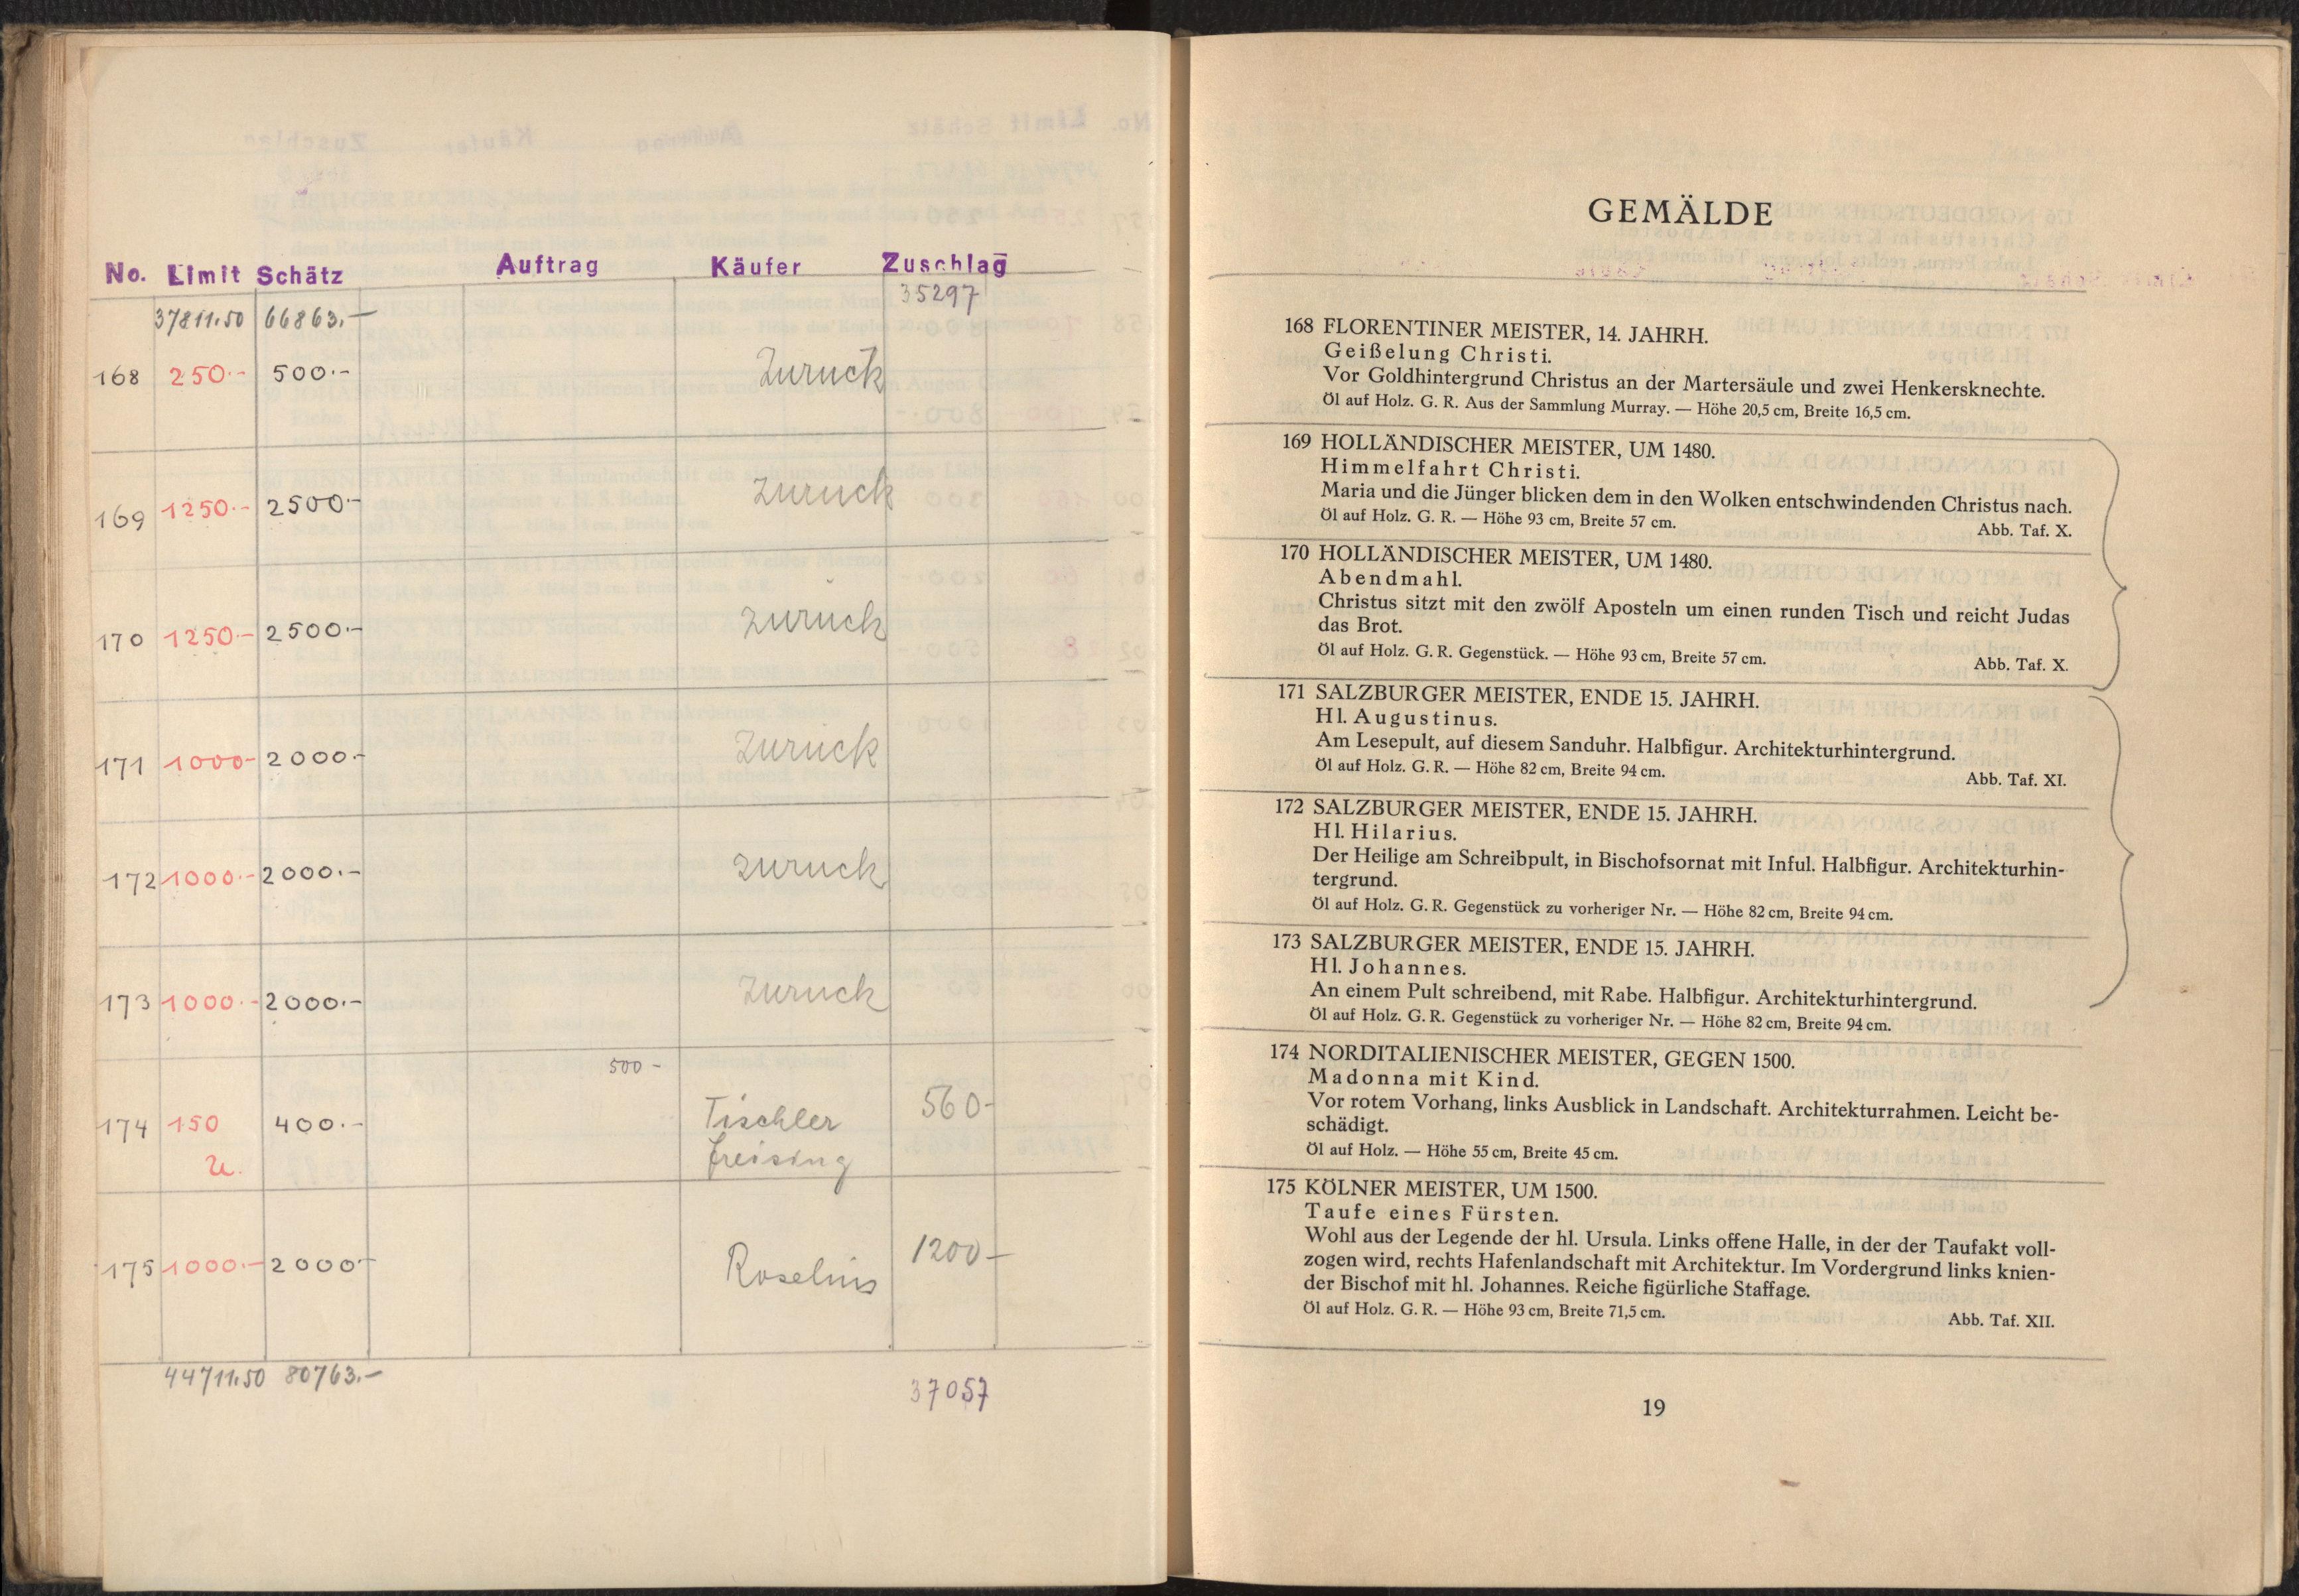 No. Limit Schätz Auftrag Käufer Zuschlag
37811.50 66863.- 35297
168 250.- 500.- Zurück
169 1250.- 2500.- Zurück
170 1250.- 2500.- Zurück
171 1000.- 2000.- Zurück
172 1000.- 2000.- Zurück
173 1000.- 2000.- Zurück
500-
174 150 400.- Tischler 560-
u. Freising
175 1000.- 2000.- Roselius 1200-
44711.50 80763.- 37057
GEMÄLDE
168 FLORENTINER MEISTER, 14. JAHRH.
Geißelung Christi.
Vor Goldhintergrund Christus an der Martersäule und zwei Henkersknechte.
Öl auf Holz. G. R. Aus der Sammlung Murray. — Höhe 20,5 cm, Breite 16,5 cm.
169 HOLLÄNDISCHER MEISTER, UM 1480.
Himmelfahrt Christi.
Maria und die Jünger blicken dem in den Wolken entschwindenden Christus nach.
Öl auf Holz. G. R. — Höhe 93 cm, Breite 57 cm. Abb. Taf. X.
170 HOLLÄNDISCHER MEISTER, UM 1480.
Abendmahl.
Christus sitzt mit den zwölf Aposteln um einen runden Tisch und reicht Judas
das Brot.
Öl auf Holz. G. R. Gegenstück. — Höhe 93 cm, Breite 57 cm. Abb. Taf. X.
171 SALZBURGER MEISTER, ENDE 15. JAHRH.
Hl. Augustinus.
Am Lesepult, auf diesem Sanduhr. Halbfigur. Architekturhintergrund.
Öl auf Holz. G. R. — Höhe 82 cm, Breite 94 cm. Abb. Taf. XI.
172 SALZBURGER MEISTER, ENDE 15. JAHRH.
Hl. Hilarius.
Der Heilige am Schreibpult, in Bischofsornat mit Inful. Halbfigur. Architekturhin-
tergrund.
Öl auf Holz. G. R. Gegenstück zu vorheriger Nr. — Höhe 82 cm, Breite 94 cm.
173 SALZBURGER MEISTER, ENDE 15. JAHRH.
Hl. Johannes.
An einem Pult schreibend, mit Rabe. Halbfigur. Architekturhintergrund.
Öl auf Holz. G. R. Gegenstück zu vorheriger Nr. — Höhe 82 cm, Breite 94 cm.
174 NORDITALIENISCHER MEISTER, GEGEN 1500.
Madonna mit Kind.
Vor rotem Vorhang, links Ausblick in Landschaft. Architekturrahmen. Leicht be-
schädigt.
Öl auf Holz. — Höhe 55 cm, Breite 45 cm.
175 KÖLNER MEISTER, UM 1500.
Taufe eines Fürsten.
Wohl aus der Legende der hl. Ursula. Links offene Halle, in der der Taufakt voll-
zogen wird, rechts Hafenlandschaft mit Architektur. Im Vordergrund links knien-
der Bischof mit hl. Johannes. Reiche figürliche Staffage.
Öl auf Holz. G. R. — Höhe 93 cm, Breite 71,5 cm. Abb. Taf. XII.
19